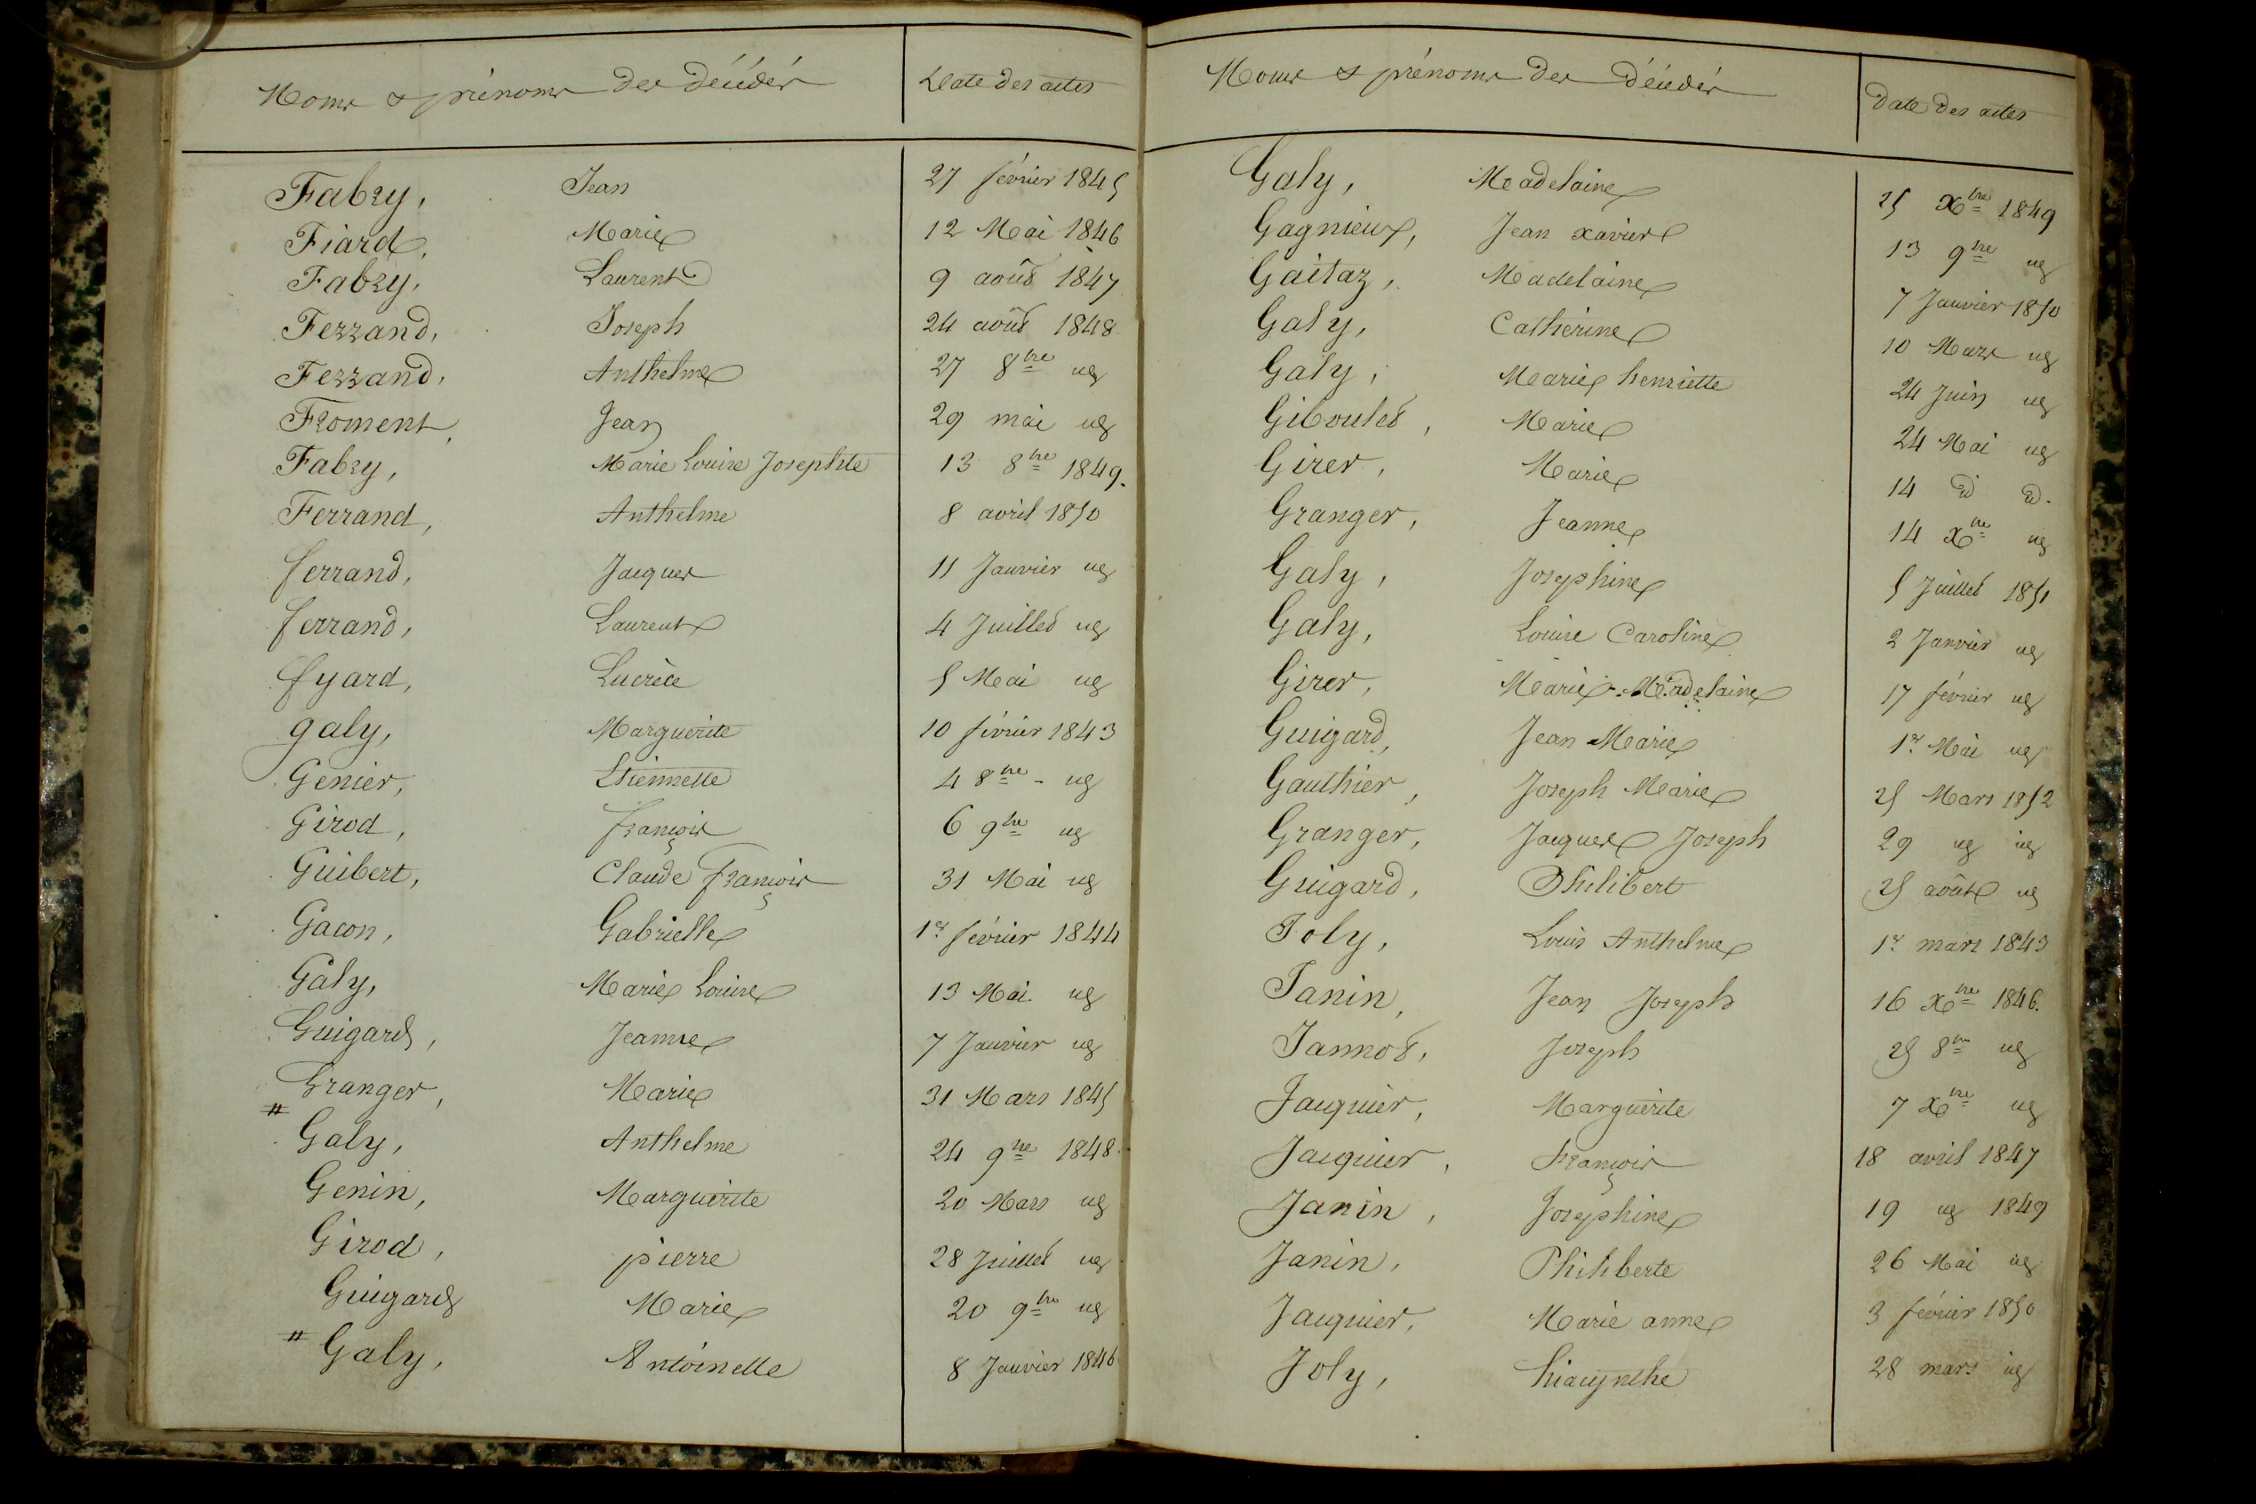 Noms & prénoms des décédés Date des actes
Fabry, Jean 27 février 1845
Fiard, Marie 12 Mai 1846
Fabry, Laurent 9 août 1847
Ferrand, Joseph 24 août 1848
Ferrand, Anthelme 27 8bre ug
Froment, Jean 29 mai ug
Fabry, Marie Louise Josephte 13 8bre 1849.
Ferrand, Anthelme 8 avril 1850
ferrand, Jacques 11 Janvier ug
ferrand, Laurent 4 Juillet ug
fyard, Lucrèce 5 Mai ug
galy, Marguerite 10 février 1843
Genier, Etiennette 4 8bre - ug
Girod, françois 6 9bre ug
Guibert, Claude François 31 Mai ug
Gacon, Gabrielle 1er février 1844
Galy, Marie Louise 13 Mai ug
Guigard, Jeanne 7 Janvier ug
Granger, Marie 31 Mars 1845
" Galy, Anthelme 24 9bre 1848
Genin, Marguerite 20 Mars ug
Girod, pierre 28 Juillet ug
Guigard Marie 20 9bre ug
" Galy, Antoinette 8 Janvier 1846
Noms & prénoms des décédés Date des actes
Galy, Madelaine 25 Xbre 1849
Gagnieux, Jean xavier 13 9bre ug
Gaitaz, Madelaine 7 Janvier 1850
Galy, Catherine 10 Mars ug
Galy, Marie henriette 24 Juin ug
Giboulet, Marie 24 Mai ug
Girer, Marie 14 d d.
Granger, Jeanne 14 xbre ug
Galy, Josephine 5 Juillet 1851
Galy, Louise Caroline 2 Janvier ug
Girer, Marie Madelaine 17 février ug
Guigard, Jean Marie 1er Mai ug
Gauthier, Joseph Marie 25 Mars 1852
Granger, Jacques Joseph 29 ug ug
Guigard, Philibert 25 août ug
Joly, Louis Anthelme 1er mars 1843
Janin, Jean Joseph 16 xbre 1846.
Jannot, Joseph 25 8bre ug
Jacquier, Marguerite 7 xbre ug
Jacquier, François 18 avril 1847
Janin, Josephine 19 ug 1849
Janin, Philiberte 26 Mai ug
Jacquier, Marie anne 3 février 1850
Joly, hiacynthe 28 mars ug